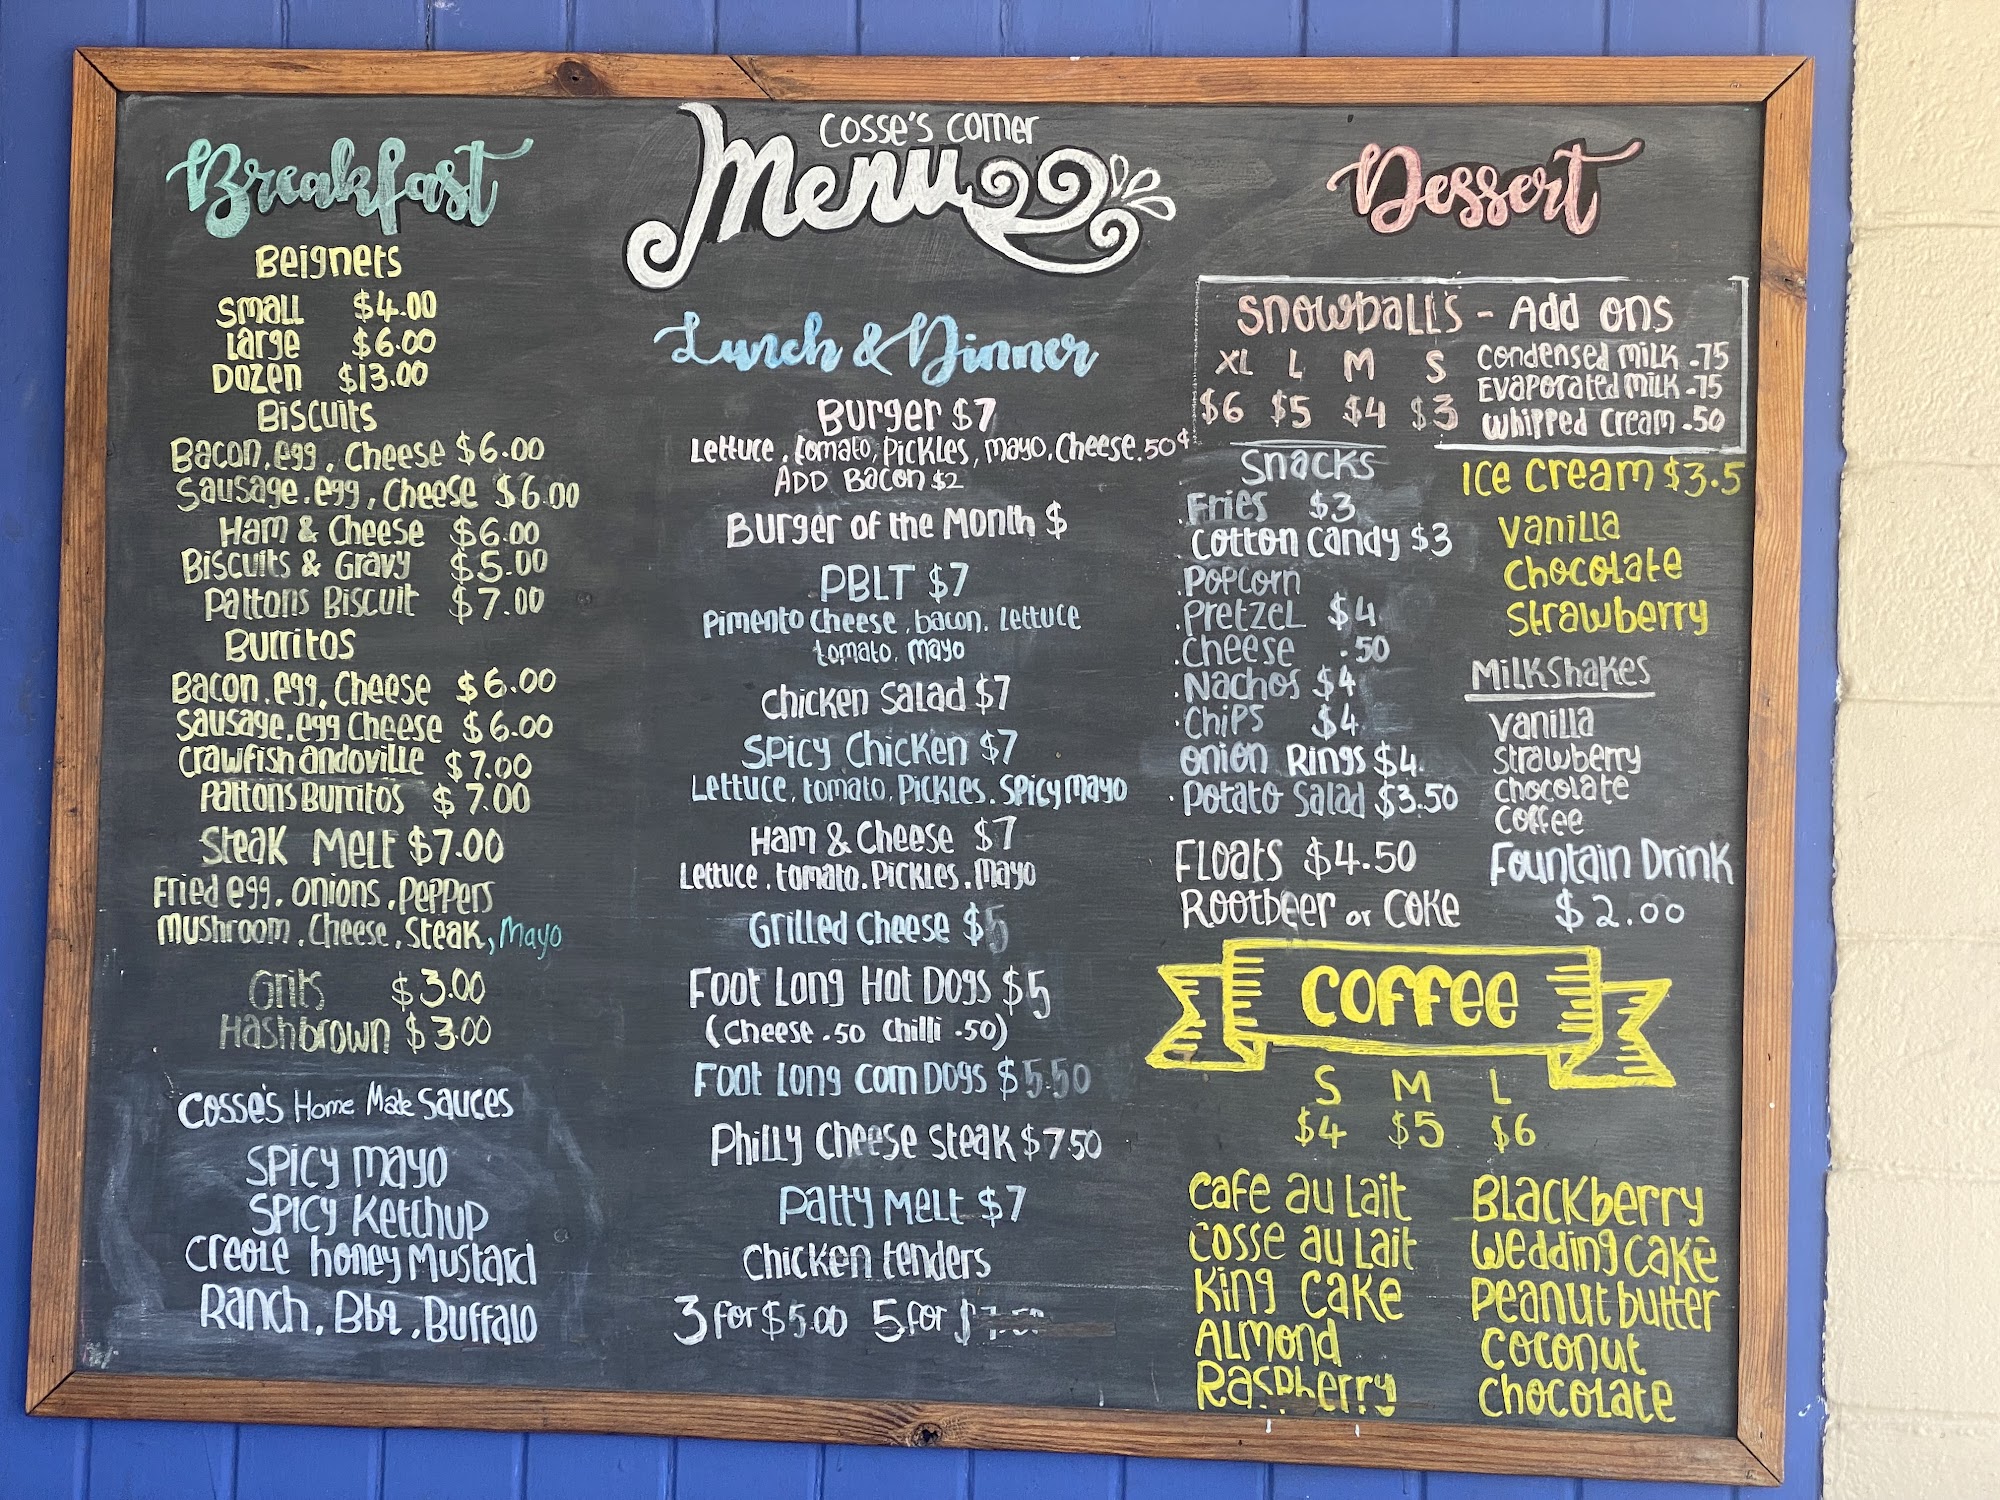 Cosse's Corner
Menu
Breakfast
Beignets
Small $4.00
Large $6.00
Dozen $13.00
Biscuits
Bacon, egg, Cheese $6.00
Sausage, egg, Cheese $6.00
Ham & Cheese $6.00
Biscuits & Gravy $5.00
Pattons Biscuit $7.00
Burritos
Bacon, egg, Cheese $6.00
Sausage, egg Cheese $6.00
Crawfish andoville $7.00
Pattons Burritos $7.00
Steak Melt $7.00
Fried egg, onions, Peppers
Mushroom, Cheese, Steak, Mayo
Grits $3.00
Hashbrown $3.00
Cosse's Home Made Sauces
Spicy Mayo
Spicy Ketchup
Creole honey Mustard
Ranch, Bbq, Buffalo
Lunch & Dinner
Burger $7
Lettuce, tomato, Pickles, mayo, Cheese .50¢
ADD Bacon $2
Burger of the Month $
PBLT $7
Pimento Cheese, bacon, Lettuce
tomato, mayo
Chicken Salad $7
Spicy Chicken $7
Lettuce, tomato, Pickles, Spicy mayo
Ham & Cheese $7
Lettuce, tomato, Pickles, Mayo
Grilled Cheese $5
Foot Long Hot Dogs $5
(Cheese .50 Chilli .50)
Foot Long Corn Dogs $5.50
Philly Cheese Steak $7.50
Patty Melt $7
Chicken tenders
3 for $5.00 5 for
Dessert
Snowball's - Add ons
XL L M S
$6 $5 $4 $3
Condensed Milk .75
Evaporated Milk .75
Whipped Cream .50
Snacks
Fries $3
Cotton Candy $3
Popcorn
Pretzel $4
Cheese .50
Nachos $4
Chips $4
Onion Rings $4
Potato Salad $3.50
Floats $4.50
Rootbeer or Coke
Ice Cream $3.5
Vanilla
Chocolate
Strawberry
Milkshakes
Vanilla
Strawberry
Chocolate
Coffee
Fountain Drink
$2.00
Coffee
S M L
$4 $5 $6
Cafe au Lait
Cosse au Lait
King Cake
Almond
Raspberry
Blackberry
Wedding Cake
Peanut butter
Coconut
Chocolate